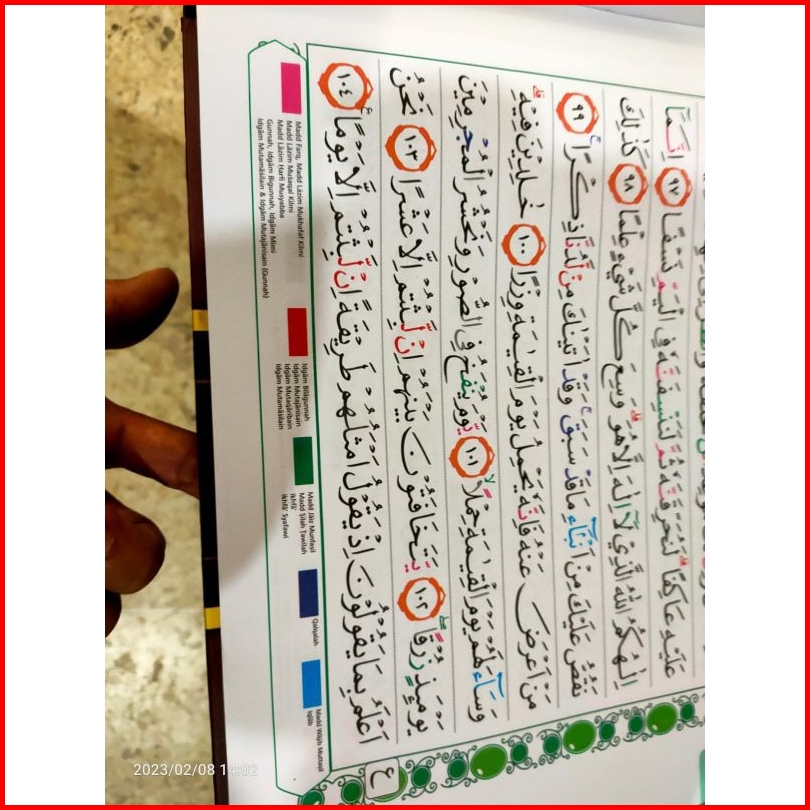 عَلَيْهِ عَاكِفًا ۗ لَنُحَرِّقَنَّهٗ ثُمَّ لَنَنْسِفَنَّهٗ فِى الْيَمِّ نَسْفًا ٩٧ اِنَّمَآ
اِلٰهُكُمُ اللّٰهُ الَّذِيْ لَآ اِلٰهَ اِلَّا هُوَۗ وَسِعَ كُلَّ شَيْءٍ عِلْمًا ٩٨ كَذٰلِكَ
نَقُصُّ عَلَيْكَ مِنْ اَنْۢبَاۤءِ مَا قَدْ سَبَقَۚ وَقَدْ اٰتَيْنٰكَ مِنْ لَّدُنَّا ذِكْرًاۚ ٩٩
مَنْ اَعْرَضَ عَنْهُ فَاِنَّهٗ يَحْمِلُ يَوْمَ الْقِيٰمَةِ وِزْرًا ١٠٠ خٰلِدِيْنَ فِيْهِۗ
وَسَاۤءَ لَهُمْ يَوْمَ الْقِيٰمَةِ حِمْلًاۙ ١٠١ يَّوْمَ يُنْفَخُ فِى الصُّوْرِ وَنَحْشُرُ الْمُجْرِمِيْنَ
يَوْمَىِٕذٍ زُرْقًاۖ ١٠٢ يَّتَخَافَتُوْنَ بَيْنَهُمْ اِنْ لَّبِثْتُمْ اِلَّا عَشْرًا ١٠٣ نَحْنُ
اَعْلَمُ بِمَا يَقُوْلُوْنَ اِذْ يَقُوْلُ اَمْثَلُهُمْ طَرِيْقَةً اِنْ لَّبِثْتُمْ اِلَّا يَوْمًا ࣖ ١٠٤
ع
Madd Farq, Madd Lāzim Mukhafaf Kilmi
Madd Lāzim Musaqal Kilmi
Madd Lāzim Harfi Musyabba
Gunnah, Idgām Bigunnah, Idgām Mimi
Idgām Mutamāsilain & Idgām Mutajānisain (Gunnah)
Idgām Bilāgunnah
Idgām Mutajānisain
Idgām Mutaqāribain
Idgām Mutamāsilain
Madd Jāiz Munfaṣil
Madd Ṣilah Ṭawīlah
Ikhfā'
Ikhfā' Syafawi
Qalqalah
Madd Wājib Muttaṣil
Iqlāb
2023/02/08 14:02